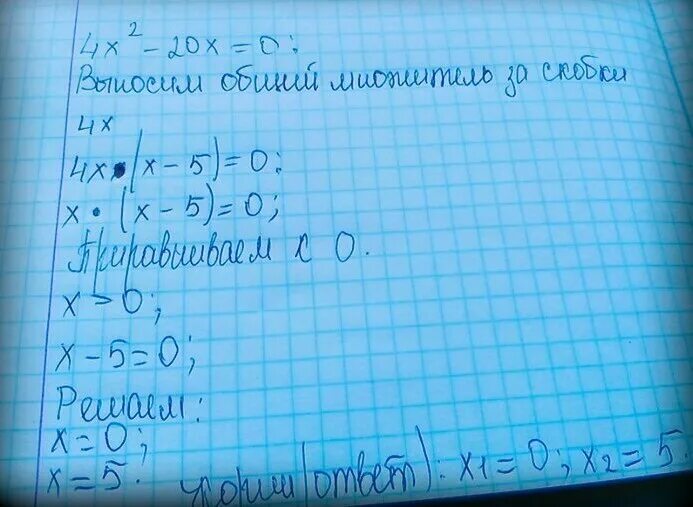 4x² - 20x = 0;
Выносим общий множитель за скобки
4x
4x • (x - 5) = 0;
x • (x - 5) = 0;
Приравниваем к 0.
x = 0;
x - 5 = 0;
Решаем:
x = 0;
x = 5.
корни (ответ): x1 = 0; x2 = 5.